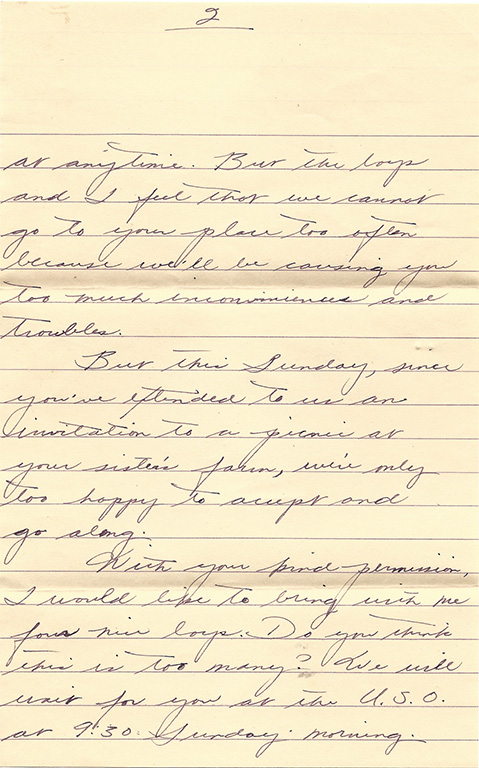 2
at anytime. But the boys
and I feel that we cannot
go to your place too often
because we'll be causing you
too much inconviniences and
troubles.
But this Sunday, since
you've extended to us an
invitation to a picnic at
your sister's farm, we're only
too happy to accept and
go along.
With your kind permission,
I would like to bring with me
four nice boys. Do you think
this is too many? We will
wait for you at the U.S.O.
at 9:30 Sunday morning.